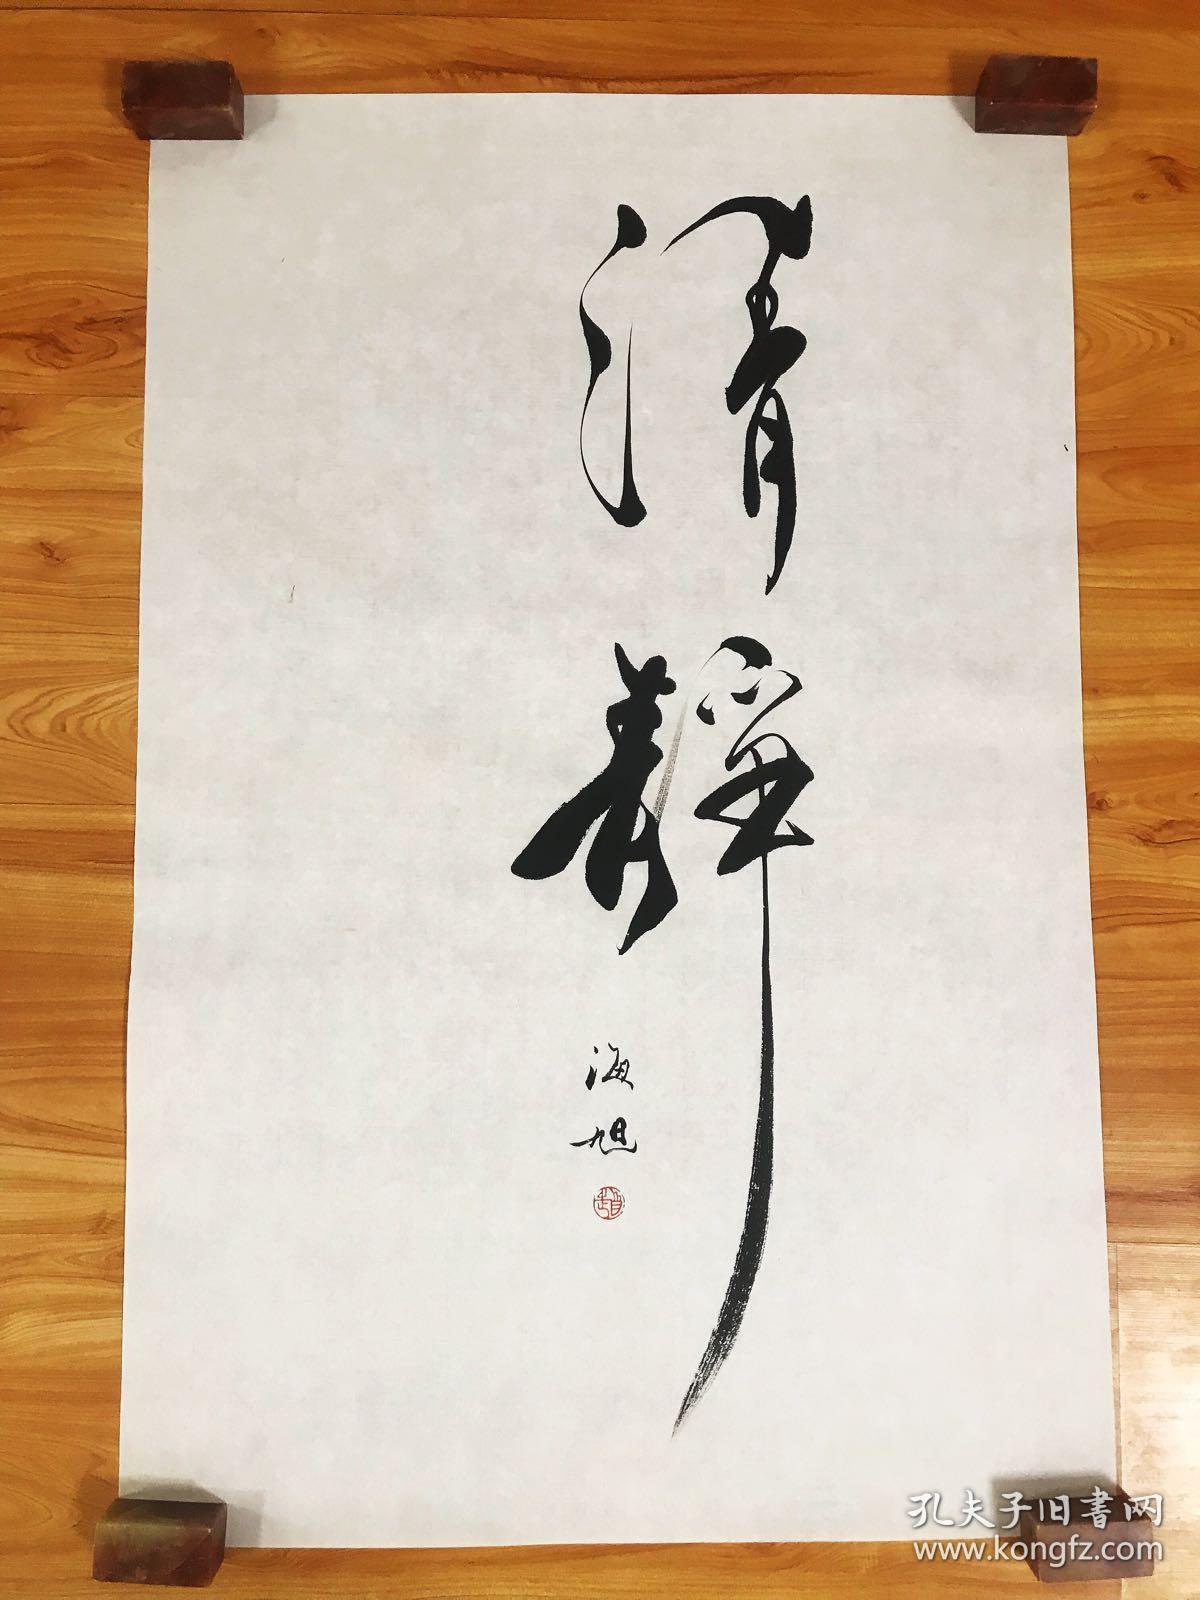 清靜
海旭
孔夫子旧書网
www.kongfz.com